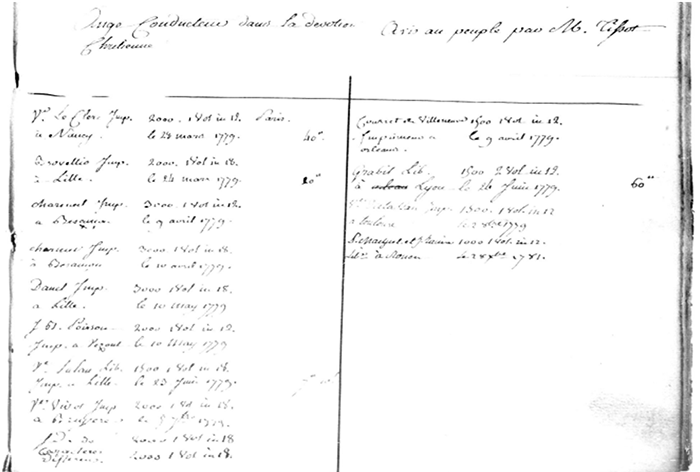 Ange-Conducteur dans la devotion
Chretienne
Vᵉ Le Clerc Imp. 2000. 1 Vol in 12. Paris.
à Nancy. le 23 mars 1779. 40ᵗᵗ
Brovellio Imp. 2000. 1 Vol in 18.
à Lille. le 24 mars 1779. 20ᵗᵗ
charmet Imp. 3000. 1 Vol in 12
a Besançon le 9 avril 1779.
charmet Imp. 3000 1 Vol in 18.
à Besançon le 10 avril 1779.
Danel Imp. 3000 1 Vol in 18.
a Lille. le 10 May 1779
J. Bt. Poisson 2000 1 Vol in 12.
Imp. a Vezoul le 10 May 1779
Vᵉ Lib. 1500 1 Vol in 18.
Imp. a Lille. le 23 Juin 1779.
Vᵉ Vivot Imp 2000 1 Vol in 18.
a le 7ᵇʳᵉ
2000 1 Vol in 18
Caracteres
Differens 2000 1 Vol in 18.
Avis au peuple par M. Tissot
Couret de Villeneuve 1500 1 Vol. in 12.
Imprimeur a le 9 avril 1779.
orleans.
Grabit Lib. 1500 2 Vol in 12.
à Lyon. le 24 Juin 1779. 60ᵗᵗ
Imp. 1500. 1 Vol in 12
a toulouse 1779
1000 1 Vol. in 12.
Libʳᵉ à Rouen 1781.